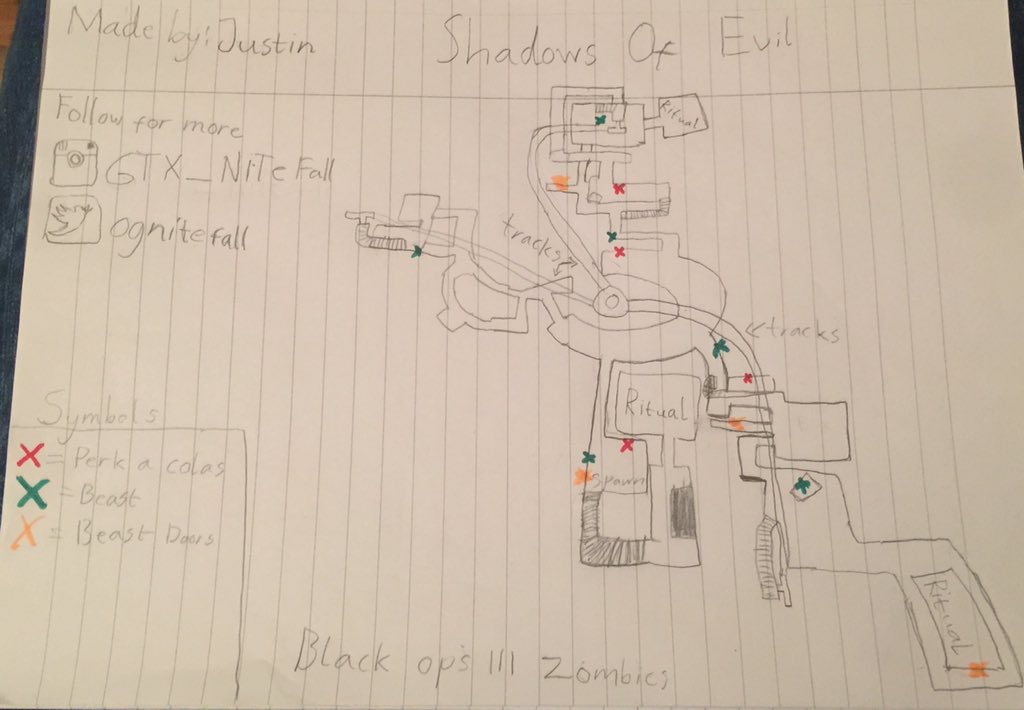 Made by: Justin
Shadows Of Evil
Follow for more
GTX_NiTeFall
ognitefall
Ritual
tracks
tracks
Ritual
spawn
Symbols
X = Perk a colas
X = Beast
X = Beast Doors
Ritual
Black ops III Zombies